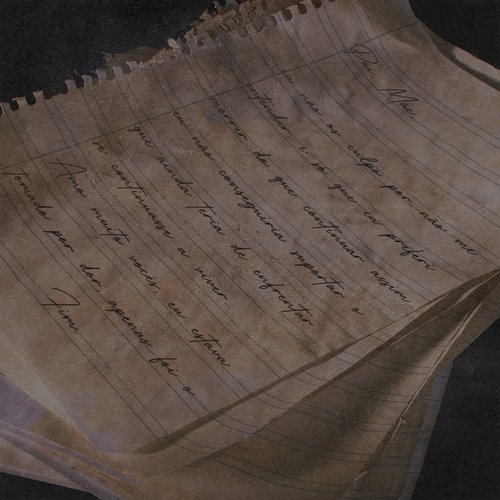 Pai, Mãe
eu não os culpo por não me
entender, é só que eu preferi
morrer do que continuar assim,
eu não conseguiria suportar o
que ainda teria de enfrentar
se continuasse a viver...
Amo muito vocês, eu estava
tomado por dor, apenas foi o
Fim.